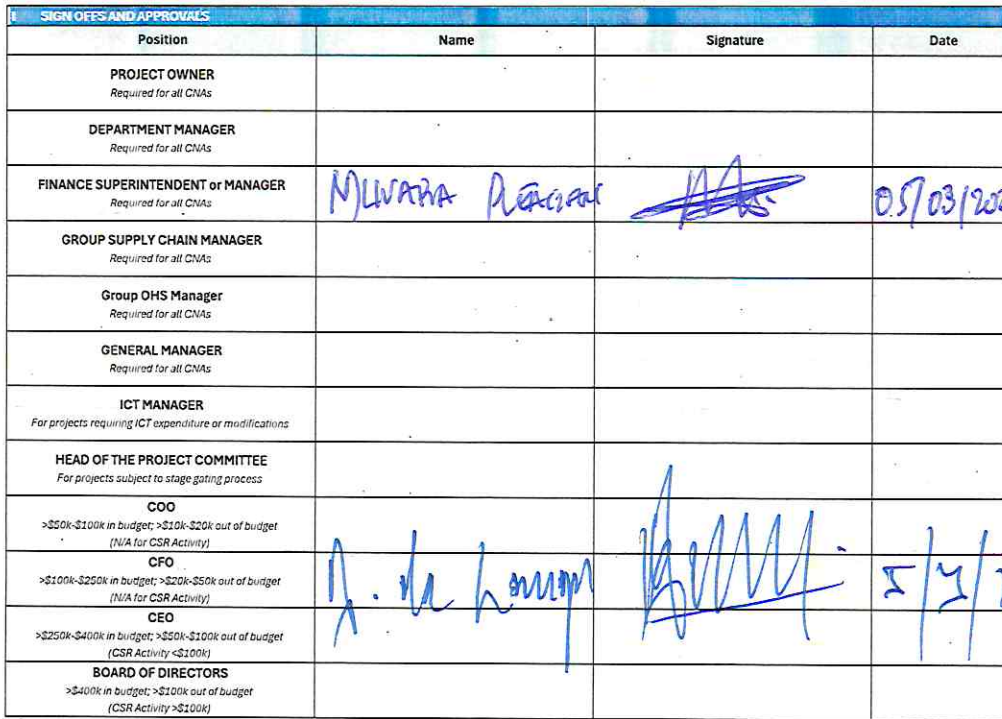 SIGN OFFS AND APPROVALS
Position Name Signature Date
PROJECT OWNER
Required for all CNAs
DEPARTMENT MANAGER
Required for all CNAs
FINANCE SUPERINTENDENT or MANAGER
Required for all CNAs
05/03/202
GROUP SUPPLY CHAIN MANAGER
Required for all CNAs
Group OHS Manager
Required for all CNAs
GENERAL MANAGER
Required for all CNAs
ICT MANAGER
For projects requiring ICT expenditure or modifications
HEAD OF THE PROJECT COMMITTEE
For projects subject to stage gating process
COO
>$50k-$100k in budget; >$10k-$20k out of budget
(N/A for CSR Activity)
CFO
>$100k-$250k in budget; >$20k-$50k out of budget
(N/A for CSR Activity)
CEO
>$250k-$400k in budget; >$50k-$100k out of budget
(CSR Activity <$100k)
BOARD OF DIRECTORS
>$400k in budget; >$100k out of budget
(CSR Activity >$100k)